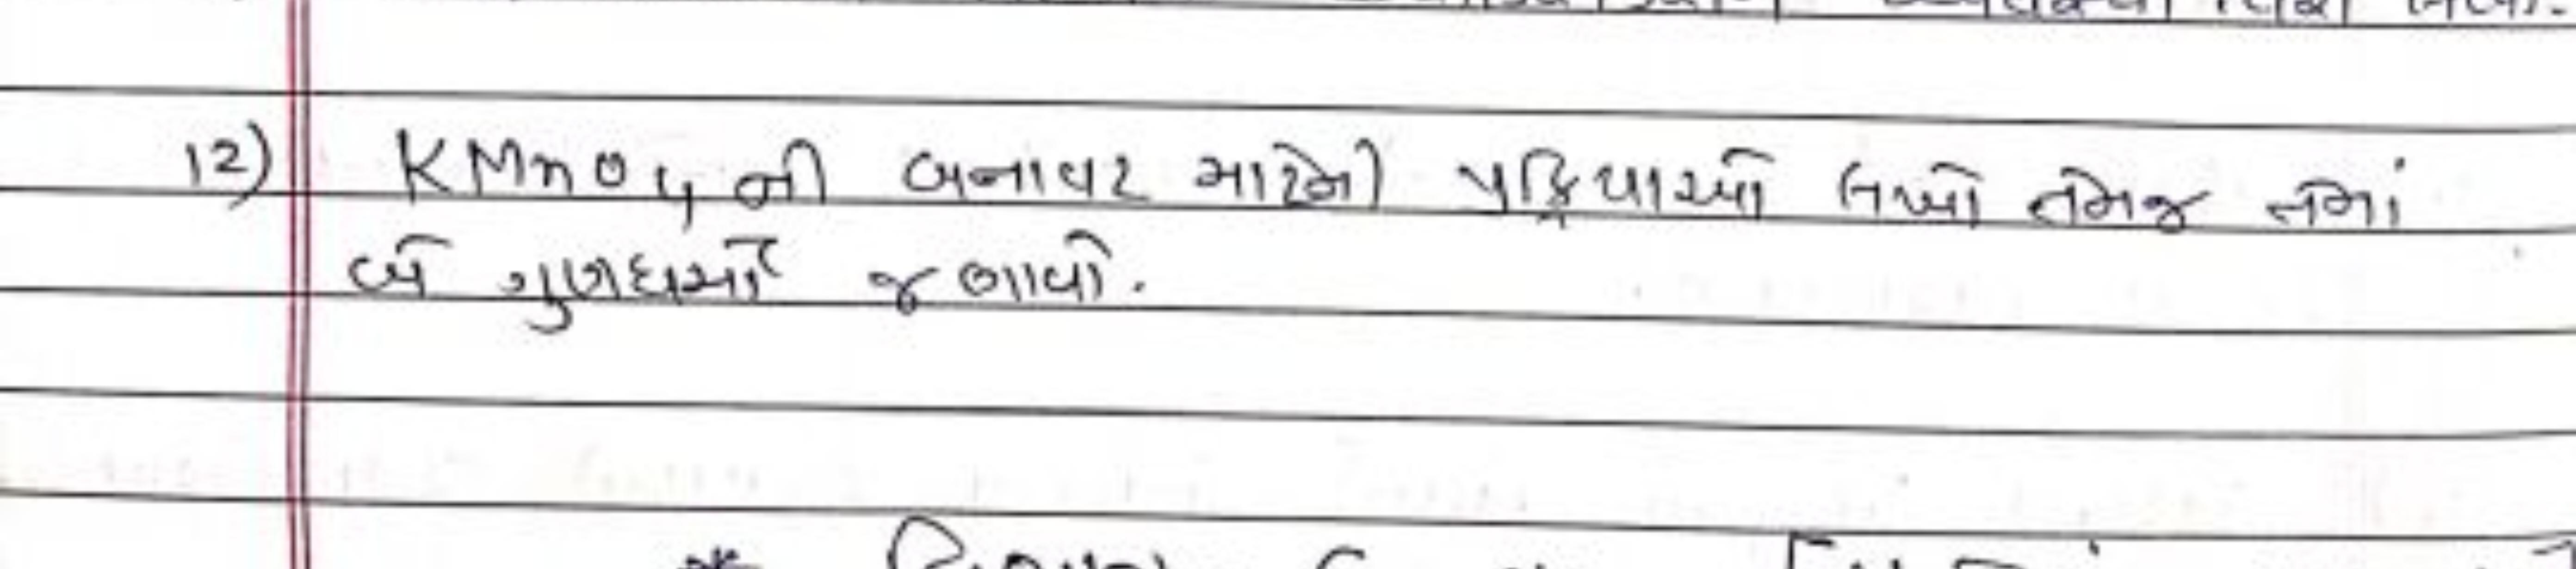 12) KMnO4ની બનાવટ માટેની પ્રક્રિયાઓ લખો તેમજ તેમાં
બે ગુણધર્મો જણાવો.